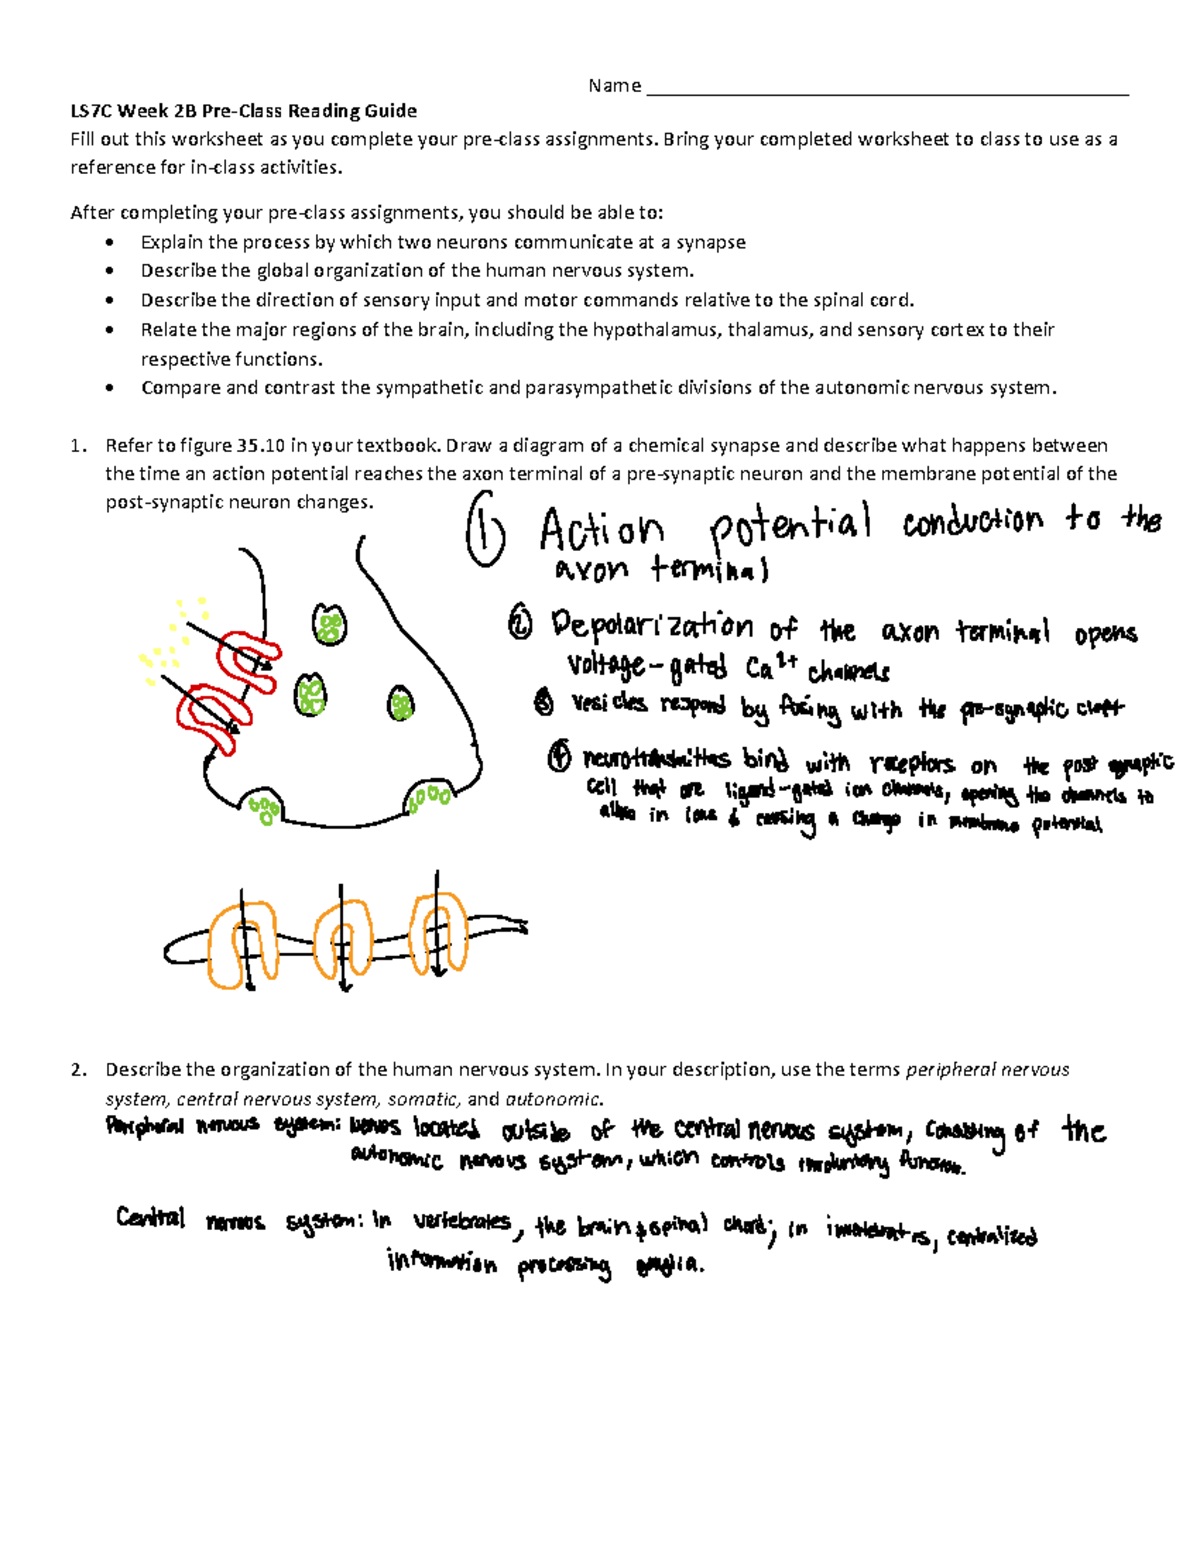 Name
LS7C Week 2B Pre-Class Reading Guide
Fill out this worksheet as you complete your pre-class assignments. Bring your completed worksheet to class to use as a
reference for in-class activities.
After completing your pre-class assignments, you should be able to:
• Explain the process by which two neurons communicate at a synapse
• Describe the global organization of the human nervous system.
• Describe the direction of sensory input and motor commands relative to the spinal cord.
• Relate the major regions of the brain, including the hypothalamus, thalamus, and sensory cortex to their
respective functions.
• Compare and contrast the sympathetic and parasympathetic divisions of the autonomic nervous system.
1. Refer to figure 35.10 in your textbook. Draw a diagram of a chemical synapse and describe what happens between
the time an action potential reaches the axon terminal of a pre-synaptic neuron and the membrane potential of the
post-synaptic neuron changes.
① Action potential conduction to the
axon terminal
② Depolarization of the axon terminal opens
voltage-gated Ca²⁺ channels
③ vesicles respond by fusing with the pre-synaptic cleft
④ bind with receptors on the post synaptic
cell that are ligand-gated ion channels, opening the channels to
in ions & causing a change in membrane potential
2. Describe the organization of the human nervous system. In your description, use the terms peripheral nervous
system, central nervous system, somatic, and autonomic.
Peripheral nervous system: located outside of the central nervous system, consisting of the
autonomic nervous system, which controls involuntary
Central nervous system: in vertebrates, the brain & spinal chord; in centralized
information processing ganglia.